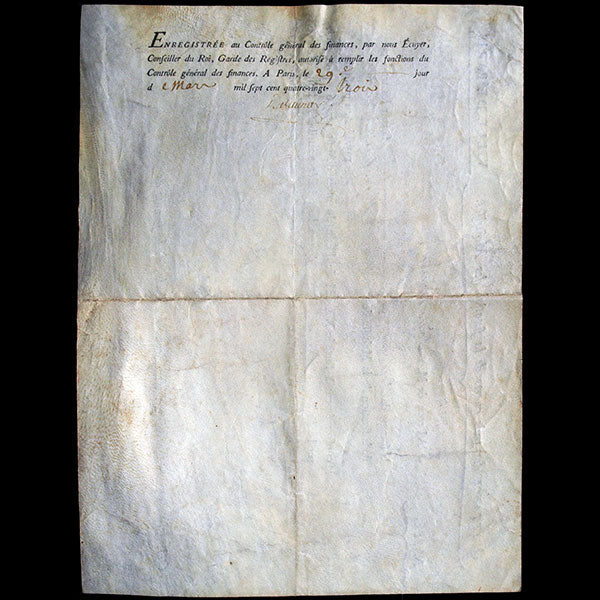 ENREGISTRÉE au Contrôle général des finances, par nous Écuyer,
Conseiller du Roi, Garde des Registres, autorisé à remplir les fonctions du
Contrôle général des finances. A Paris, le 29e jour
de Mars mil sept cent quatre-vingt-trois